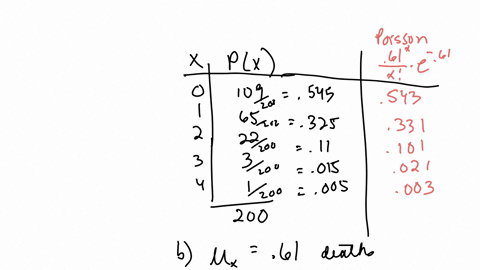 Poisson
X P(x) .61^x/x! · e^-.61
0 109/200 = .545 .543
1 65/202 = .325 .331
2 22/200 = .11 .101
3 3/200 = .015 .021
4 1/200 = .005 .003
200
b) μx = .61 deaths